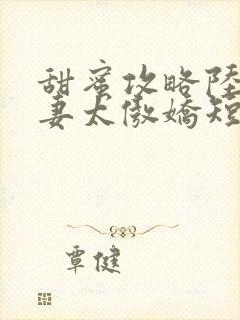 甜蜜攻略陸
妻太傲嬌短
覃健